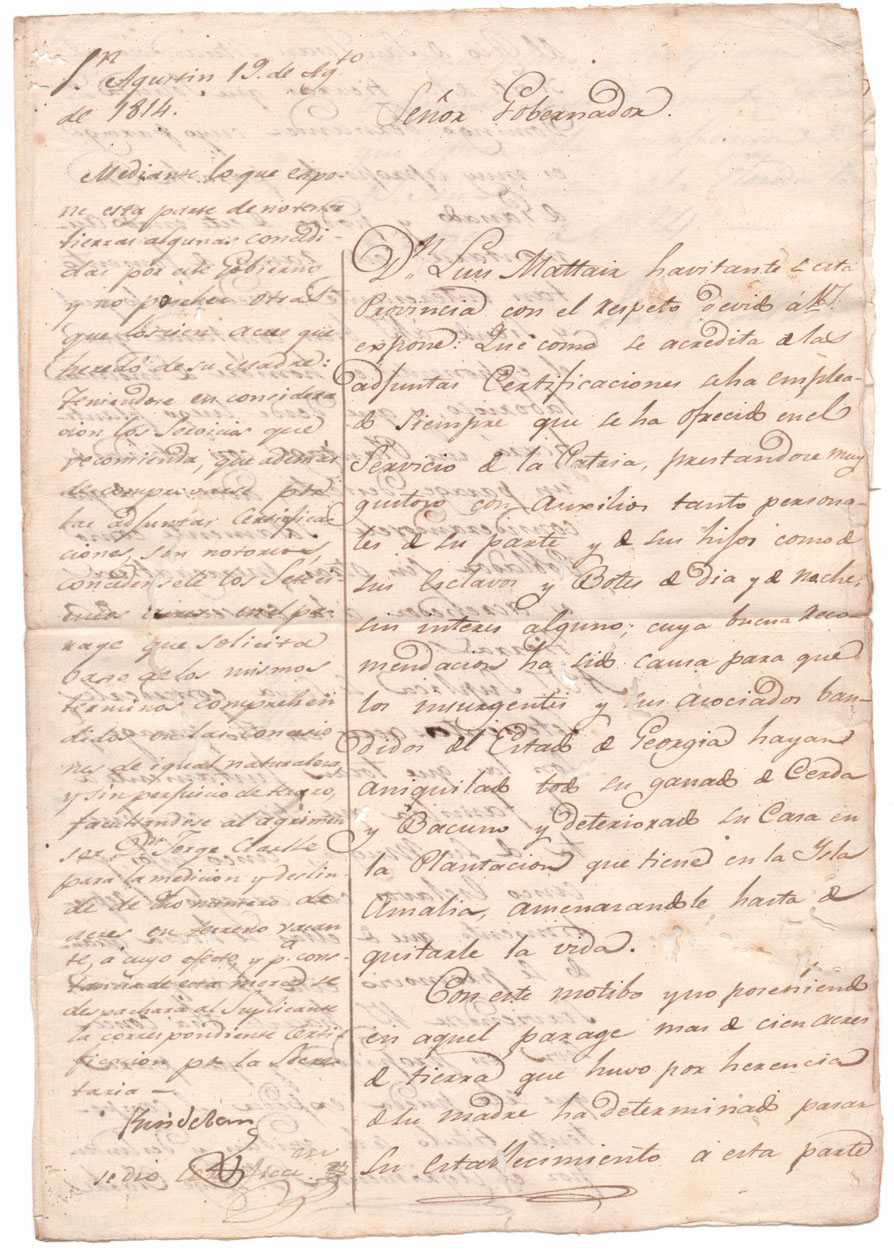 Sn Agustin 19. de Agto
de 1814.
Mediante lo que expo-
ne esta parte de no tener
tierras algunas concedi-
das por este Gobierno
y no poseher otras
que los cien acres que
heredó de su Madre:
Teniendose en considera
cion los Servicios que
recomienda, que ademas
de comprovarse pr
las adjuntas certifica
ciones, son notorios,
concedensele los Seten
en el pa-
rage que solicita
baxo de los mismos
terminos comprehen
didos en las concesio
nes de igual naturaleza
y sin perjuicio de tercero,
facultandose al agrimen
sor Dn Jorge Clarke
para la medicion y deslin
de de dho numero de
acres en terreno vacan
te, á cuyo efecto y pa cons-
tancia de esta merced se
despachará al Suplicante
la correspondiente certi-
ficacion pr la Secre
taria—
Kindelan
se dio
Señor Gobernador.
Dn Luis Mattair havitante de esta
Provincia con el respeto devido á V.S.
expone: Que como se acredita de las
adjuntas Certificaciones se ha emplea-
do siempre que se ha ofrecido en el
Servicio de la Patria, prestandose muy
gustoso con auxilios tanto persona-
les de su parte y de sus hijos como de
sus Esclavos y Botes de dia y de noche,
sin interes alguno; cuya buena reco-
mendacion ha sido causa para que
los insurgentes y sus asociados ban-
didos del Estado de Georgia hayan
aniquilado todo su ganado de Cerda
y Bacuno y deteriorado su Casa en
la Plantacion que tiene en la Ysla
Amalia, amenazandole hasta de
quitarle la vida.
Con este motibo y no poseniendo
en aquel parage mas de cien acres
de tierra que huvo por herencia
de su madre ha determinado pasar
su establecimiento a esta parte